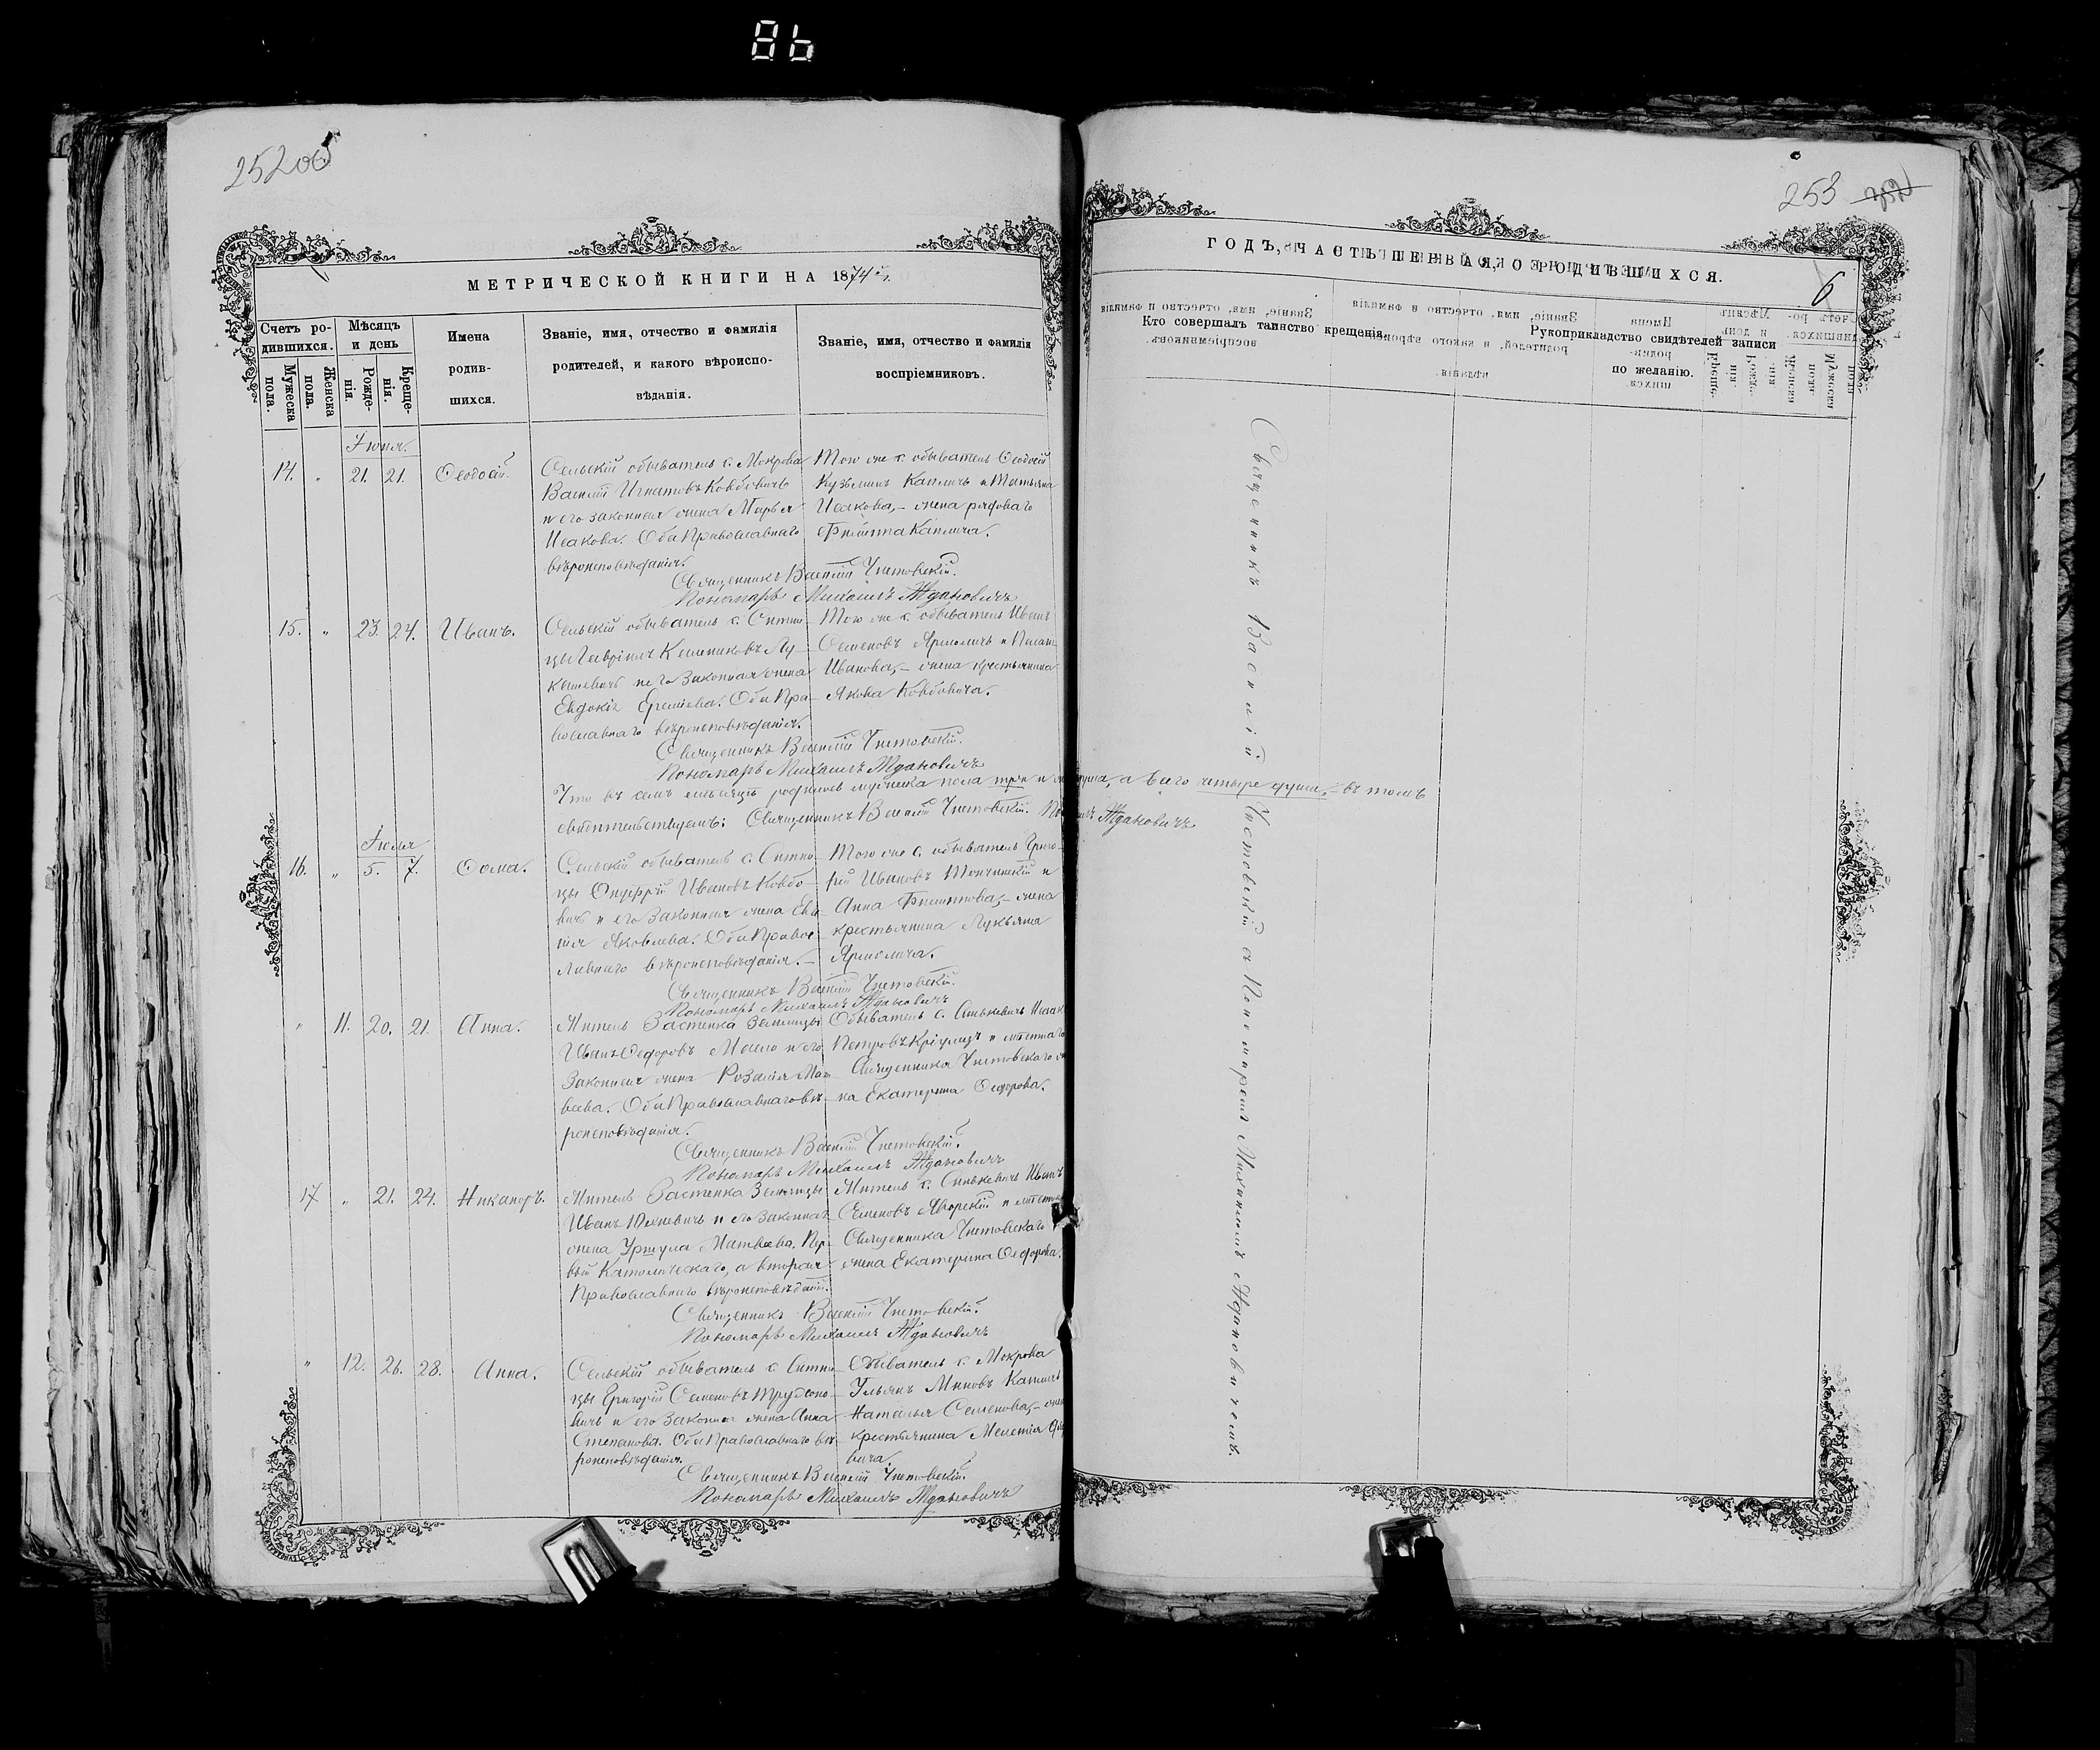 86
252об
253
МЕТРИЧЕСКОЙ КНИГИ НА 1874 г.
ГОДЪ, ЧАСТЬ ПЕРВАЯ, О РОДИВШИХСЯ.
6
Счетъ родившихся.
Мужеска пола.
Женска пола.
Мѣсяцъ и день
Рожденія.
Крещенія.
Имена родившихся.
Званіе, имя, отчество и фамилія
родителей, и какого вѣроисповѣданія.
Званіе, имя, отчество и фамилія
воспріемниковъ.
Кто совершалъ таинство крещенія.
Рукоприкладство свидѣтелей записи
по желанію.
Іюня.
14. " 21. 21. Ѳеодосій.
Сельскій обыватель с. Мокрова
Василій Игнатовъ Ковбовичъ
и его законная жена Марья
Исакова. Оба Православнаго
вѣроисповѣданія.
Того же с. обыватель Ѳеодосій
Кузьминъ Капличъ и Татьяна
Исакова, – жена рядоваго
Филиппа Каплича.
Священникъ Василій Чистовскій.
Пономарь Михаилъ Ждановичъ
15. " 23. 24. Иванъ.
Сельскій обыватель с. Ситни-
цы Гавріилъ
и его законная жена
Евдокія Оба Пра-
вославнаго вѣроисповѣданія.
Того же с. обыватель Иванъ
Семеновъ Ярмоличъ и
Иванова, – жена крестьянина
Якова Ковбовича.
Священникъ Василій Чистовскій.
Пономарь Михаилъ Ждановичъ
Что въ семъ мѣсяцѣ родилось мужеска пола три и душа, а всего четыре души, – въ томъ
свидѣтельствуемъ: Священникъ Василій Чистовскій. Ждановичъ
Іюля
16. " 5. 7. Ѳома.
Сельскій обыватель с. Ситни-
цы Онуфрій Ивановъ Ковбо-
вичъ и его законная жена
Яковлева. Оба Правос-
лавнаго вѣроисповѣданія. –
Того же с. обыватель Григо-
рій Ивановъ и
Анна Филиппова, – жена
крестьянина Лукьяна
Ярмолича.
Священникъ Василій Чистовскій.
Пономарь Михаилъ Ждановичъ
" 11. 20. 21. Анна.
Житель Застенка
Иванъ Ѳедоровъ и его
законная жена Розалія Мат-
веева. Оба Православнаго вѣ-
роисповѣданія.
Обыватель с. Синкевичъ
Петровъ и мѣстнаго
Священника Чистовскаго же-
на Екатерина Ѳедорова.
Священникъ Василій Чистовскій.
Пономарь Михаилъ Ждановичъ
17 " 21. 24. Никаноръ.
Житель Застенка
Иванъ и его законная
жена Уршула Матвеева. Пер-
вый Католическаго, а вторая
Православнаго вѣроисповѣданій.
Житель с. Синкевичъ Иванъ
Семеновъ Яворскій и
Священника Чистовскаго
жена Екатерина Ѳедорова.
Священникъ Василій Чистовскій.
Пономарь Михаилъ Ждановичъ
" 12. 26. 28. Анна.
Сельскій обыватель с. Ситни-
цы Григорій Семеновъ
и его законная жена Анна
Степанова. Оба Православнаго вѣ-
роисповѣданія.
Обыватель с. Мокрова
Ульянъ Миновъ Капличъ
Наталья Семенова, –
крестьянина Мелетія
вича.
Священникъ Василій Чистовскій.
Пономарь Михаилъ Ждановичъ
Священникъ Василій Чистовскій съ Пономаремъ Михаиломъ Ждановичемъ.